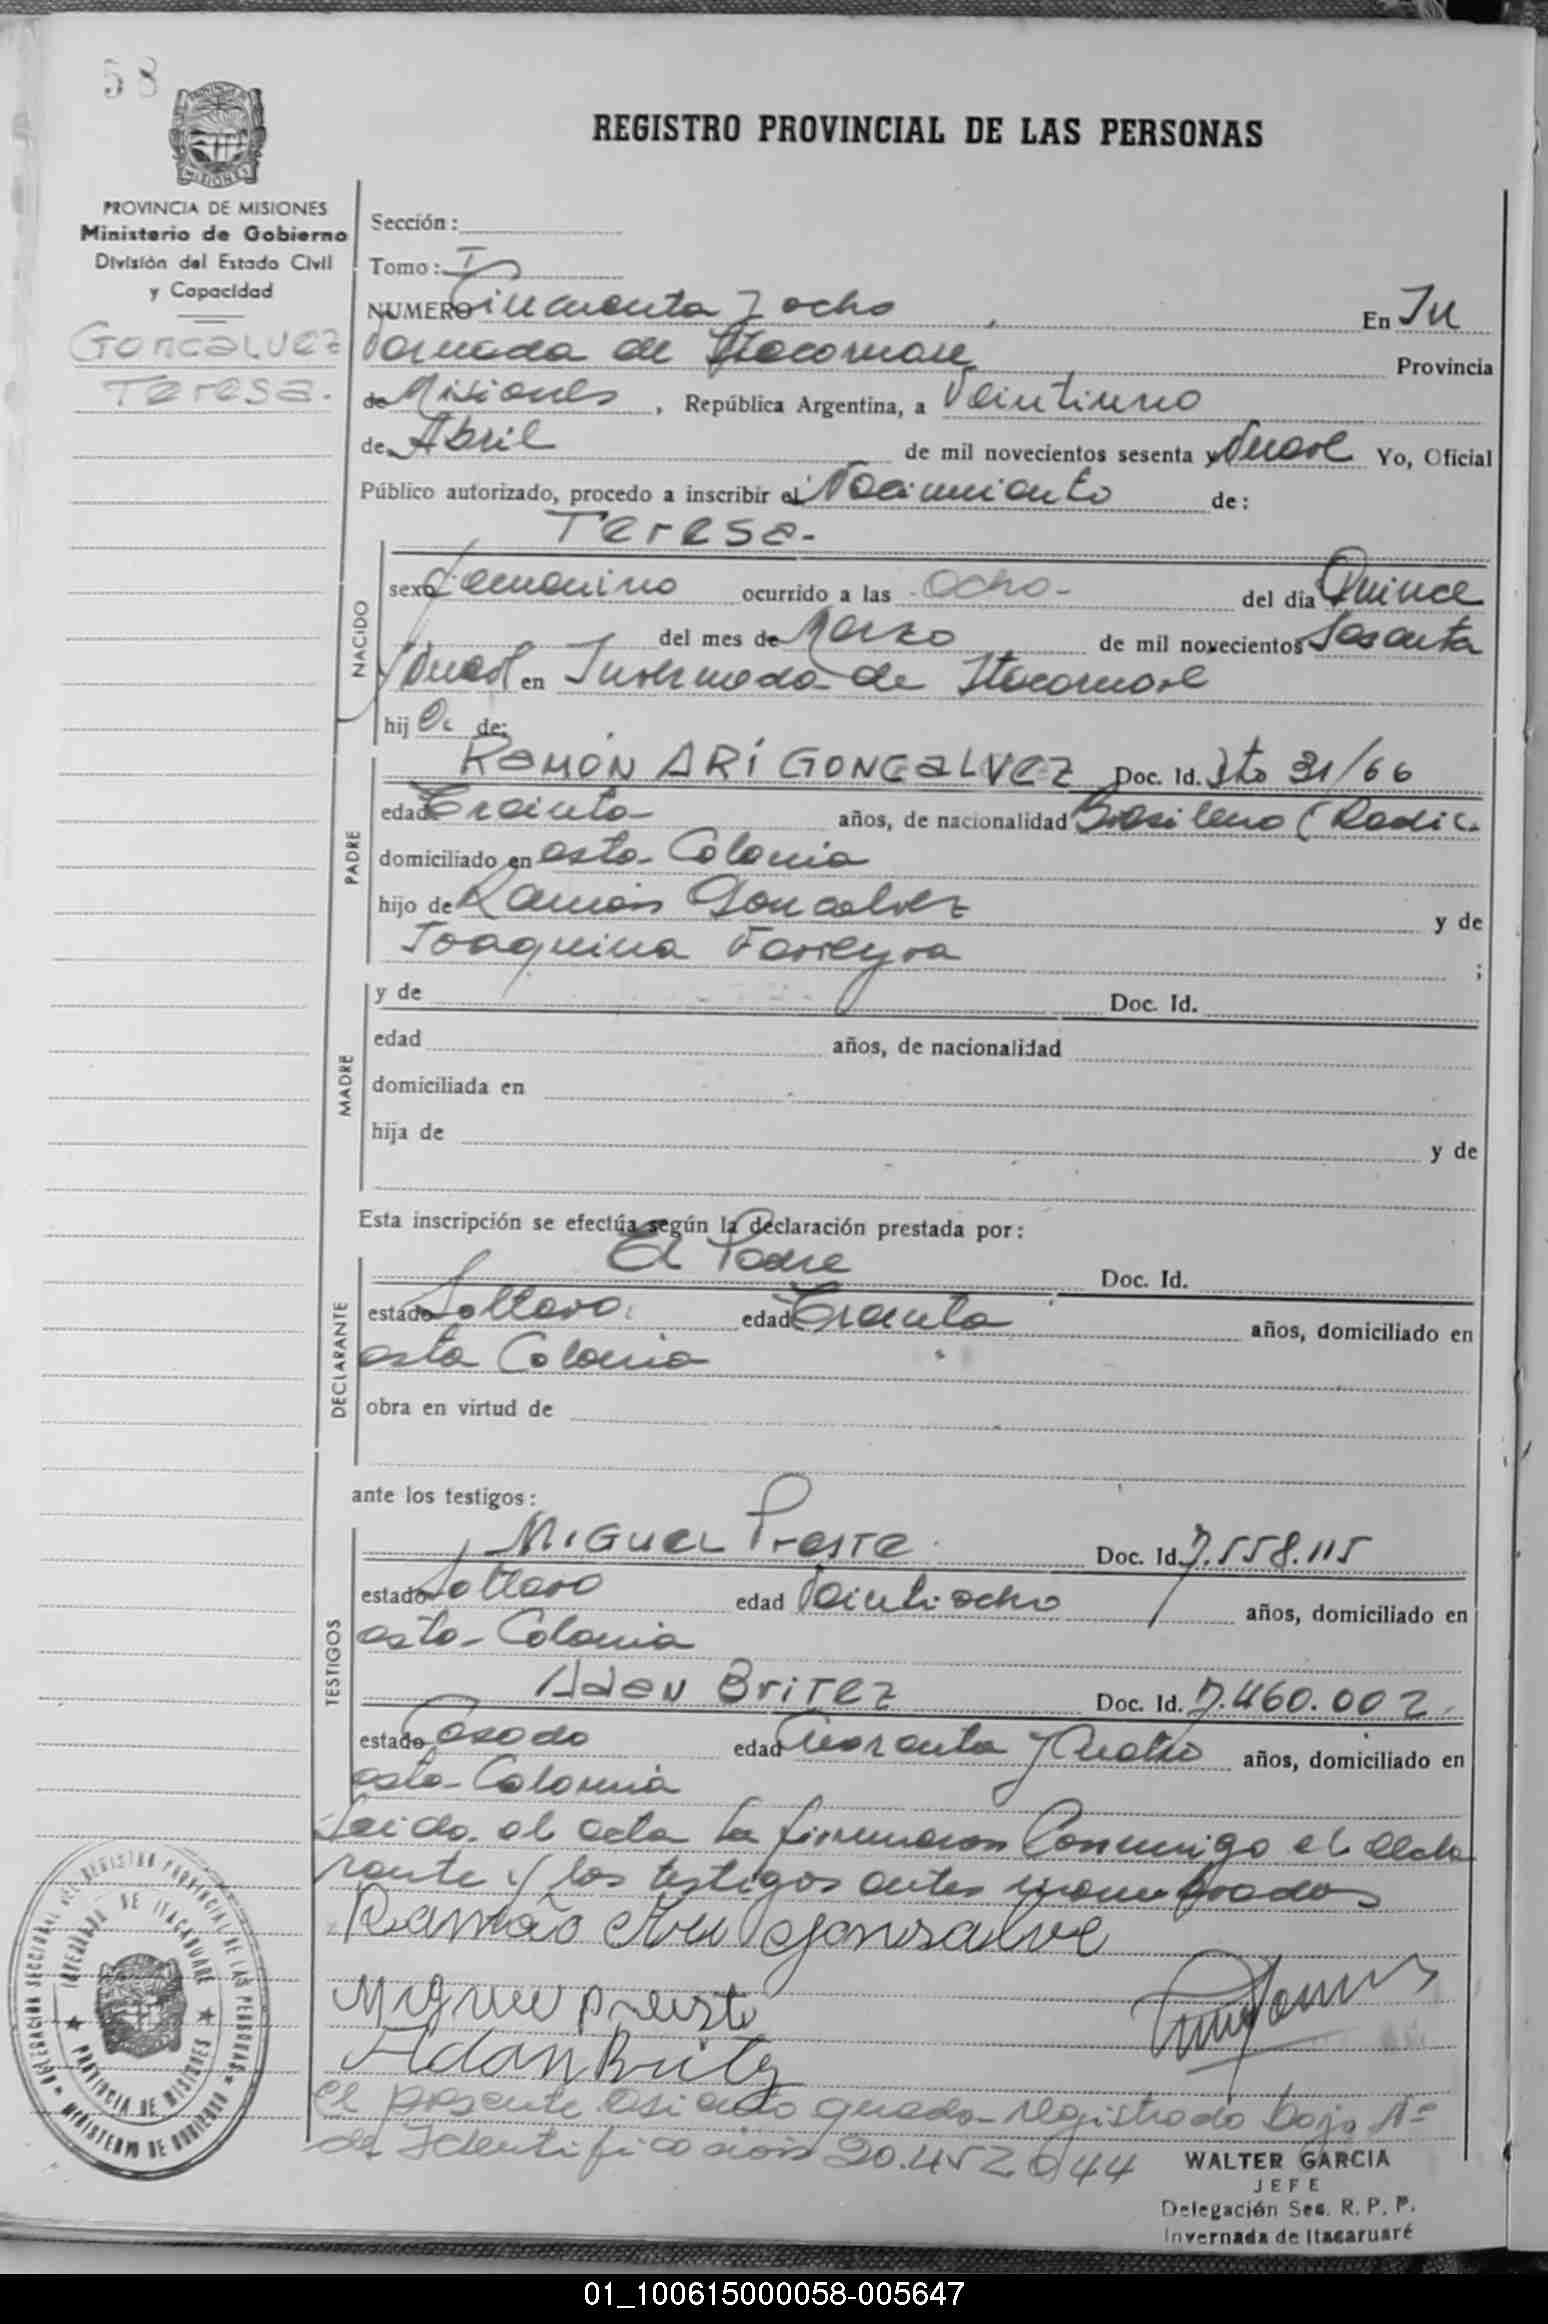 58
PROVINCIA DE MISIONES
Ministerio de Gobierno
División del Estado Civil
y Capacidad
Goncalvez
Teresa.
REGISTRO PROVINCIAL DE LAS PERSONAS
Sección:
Tomo: I
NUMERO Cincuenta y ocho En In
vernada de Itacaruare Provincia
de Misiones, República Argentina, a Veintiuno
de Abril de mil novecientos sesenta y Nueve Yo, Oficial
Público autorizado, procedo a inscribir el Nacimiento de:
Teresa.-
NACIDO
sexo femenino ocurrido a las Ocho- del día Quince
del mes de Marzo de mil novecientos Sesenta
y Nueve en Invernada de Itacaruare
hij a de:
PADRE
Ramón Arí Goncalvez Doc. Id. Dto 31/66
edad Treinta años, de nacionalidad Brasileno (Radic.
domiciliado en esta Colonia
hijo de Ramón Goncalvez y de
Joaquina Ferreyra ;
MADRE
y de Doc. Id.
edad años, de nacionalidad
domiciliada en
hija de y de
Esta inscripción se efectúa según la declaración prestada por:
DECLARANTE
El Padre Doc. Id.
estado Soltero. edad Treinta años, domiciliado en
esta Colonia
obra en virtud de
ante los testigos:
TESTIGOS
Miguel Preste Doc. Id. 7.558.115
estado Soltero edad Veintiocho años, domiciliado en
esta Colonia
Aden Britez Doc. Id. 7.460.002
estado Casado edad Cuarenta y Cuatro años, domiciliado en
esta Colonia
Leida el acta la firmaron Conmigo el decla
rante y los testigos antes nombrados
Ramão Ari Gonsalve
Miguel Preste
Adan Britz
El presente asiento queda registrado bajo Nº
de Identificacion 20.452044
WALTER GARCIA
JEFE
Delegación Sec. R. P. P.
Invernada de Itacaruaré
DELEGACION SECCIONAL DEL REGISTRO PROVINCIAL DE LAS PERSONAS
INVERNADA DE ITACARUARE
PROVINCIA DE MISIONES
MINISTERIO DE GOBIERNO
01_100615000058-005647